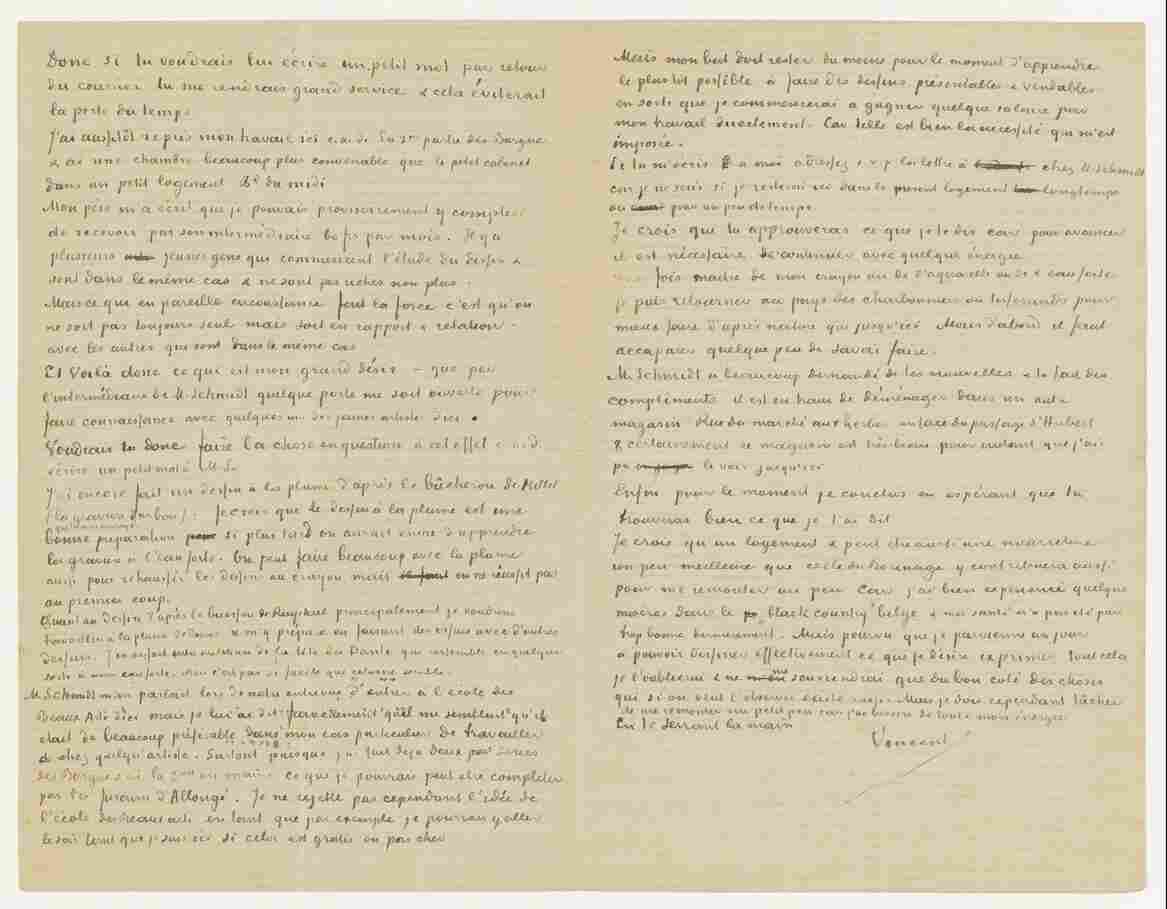 Donc si tu voudrais lui écrire un petit mot par retour
du courrier tu me rendrais grand service & cela éviterait
la perte du temps
J'ai aussitôt repris mon travail ici c.à.d. la 2me partie des Bargue
& ai une chambre beaucoup plus convenable que le petit cabinet
dans un petit logement Bd du midi
Mon père m'a écrit que je pouvais provisoirement y compter
de recevoir par son intermédiaire 60 frs par mois. Il y a
plusieurs jeunes gens qui commencent l'étude du dessin &
sont dans le même cas & ne sont pas riches non plus.
Mais ce qui en pareille circonstance fait la force c'est qu'on
ne soit pas toujours seul mais soit en rapport & relation
avec les autres qui sont dans le même cas
Et voilà donc ce qui est mon grand désir – que par
l'intermédiaire de M. Schmidt quelque porte me soit ouverte pour
faire connaissance avec quelques uns des jeunes artistes d'ici.
Voudrais tu donc faire la chose en question à cet effet c.à.d.
écrire un petit mot à M. S.
J'ai encore fait un dessin à la plume d'après le bûcheron de Millet
(la gravure sur bois). Je crois que le dessin à la plume est une
bonne préparation si plus tard on aurait envie d'apprendre
la gravure à l'eau forte. On peut faire beaucoup avec la plume
aussi pour rehausser les dessins au crayon mais on ne réussit pas
au premier coup.
Quant au dessin d'après le buisson de Ruysdael principalement je voudrais
travailler à la plume & m'y prépare en faisant des essais avec d'autres
dessins. J'en ai fait un de la tête du Dante qui ressemble en quelque
sorte à une eau forte. Mais c'est pas si facile que cela ne semble.
M. Schmidt m'en parlant lors de notre entrevue d'entrer à l'école des
Beaux Arts d'ici mais je lui ai dit franchement qu'il me semblait qu'il
était de beaucoup préférable dans mon cas particulier de travailler
chez quelqu'artiste. Surtout puisque j'ai fait déjà deux des séries
des Bargues & ai la 3me en mains ce que je pourrais peut-être compléter
par les fusains d'Allongé. Je ne rejette pas cependant l'idée de
l'école des beaux arts en tant que par exemple je pourrais y aller
le soir tant que je suis ici si cela est gratis ou pas cher
Mais mon but doit rester du moins pour le moment d'apprendre
le plus tôt possible à faire des dessins présentables & vendables
en sorte que je commencerai à gagner quelque salaire par
mon travail directement. Car telle est bien la nécessité qui m'est
imposée.
Si tu m'écris à moi adressez s.v.p. la lettre à chez M. Schmidt
car je ne sais si je resterai ici dans le présent logement longtemps
ou pour un peu de temps
Je crois que tu approuveras ce que je te dis car pour avancer
il est nécessaire de continuer avec quelque énergie
fois maître de mon crayon ou de l'aquarelle ou de l'eau forte
je puis retourner au pays des charbonniers ou tisserands pour
mieux faire d'après nature que jusqu'ici. Mais d'abord il faut
accaparer quelque peu de savoir faire.
M. Schmidt a beaucoup demandé de tes nouvelles & te fait des
compliments il est en train de déménager dans un autre
magasin Rue du marché aux herbes en face du passage d'Hubert
& certainement ce magasin est très beau pour autant que j'ai
pu le voir jusqu'ici
Enfin pour le moment je conclus en espérant que tu
trouveras bien ce que je t'ai dit
Je crois qu'un logement & peut être aussi une nourriture
un peu meilleure que celle du Borinage y contribuera aussi
pour me remonter un peu Car j'ai bien expérimenté quelque
misères dans le „black country" belge & ma santé n'a pas été par
trop bonne dernièrement. Mais pourvu que je parvienne un jour
à pouvoir dessiner effectivement ce que je désire exprimer tout cela
je l'oublierai & ne me souviendrai que du bon côté des choses
qui si on veut l'observer existe aussi. Mais je dois cependant tâcher
de me remonter un petit peu car j'ai besoin de toute mon énergie
En te serrant la main
Vincent